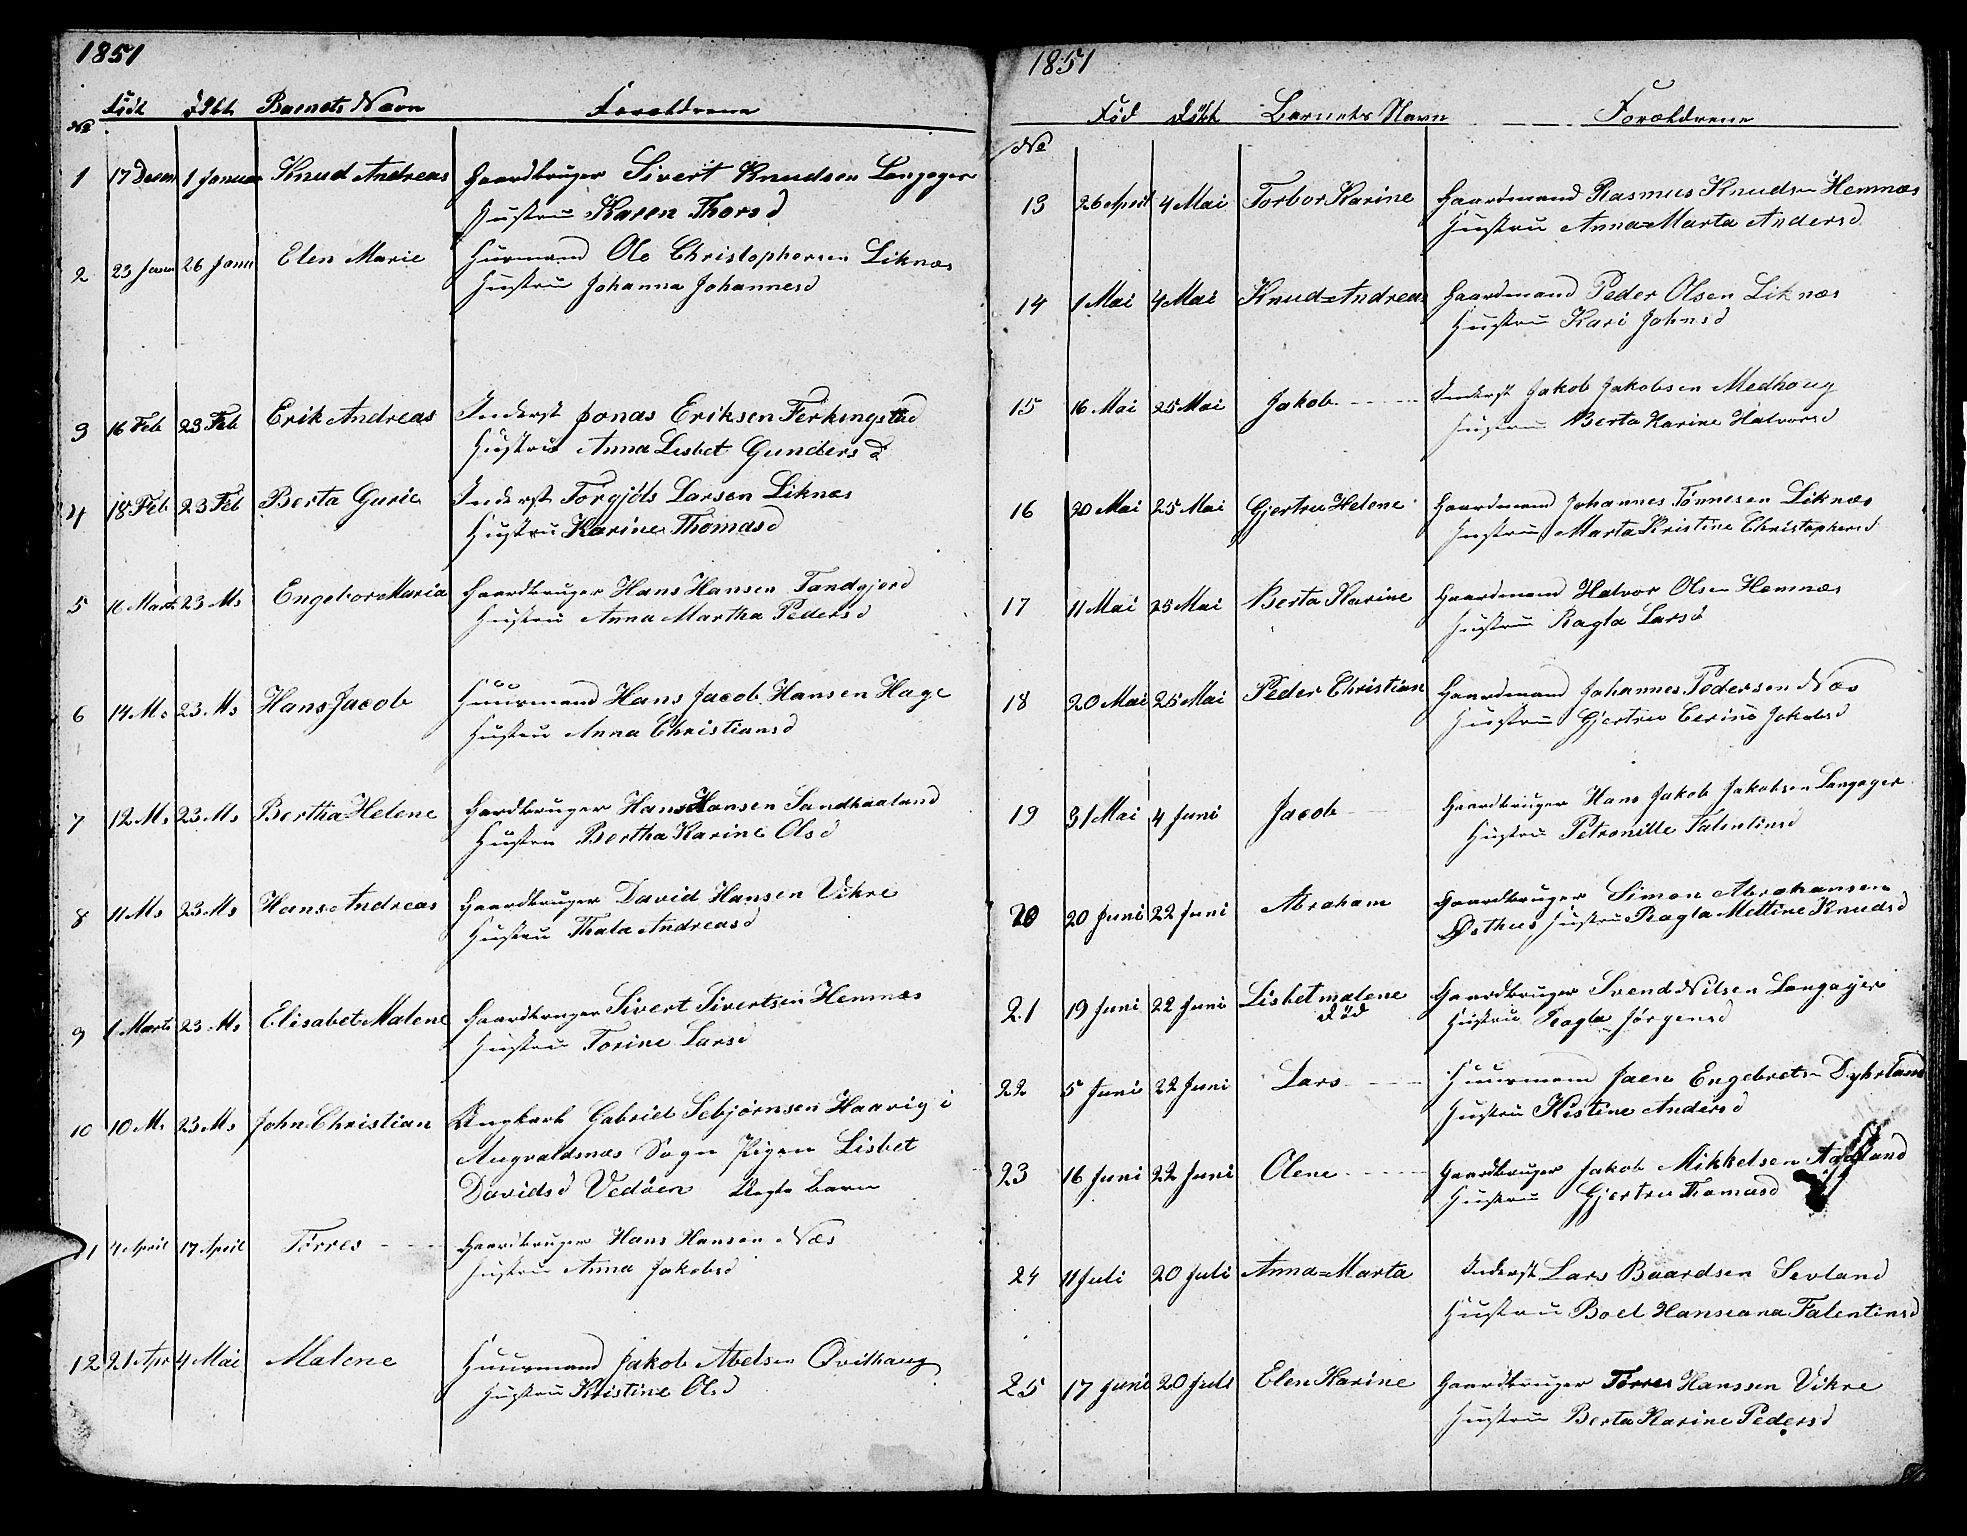 1851
No Født Døbt Barnets Navn Forældrene
1 17 Decem 1 Januar Knud Andreas Gaardbruger Sivert Knudsen Langager
Hustru Karen Thorsd
2 23 Janu 26 Janu Elen Marie Huusmand Ole Christophersen Liknæs
Hustru Johanna Johannesd
3 16 Feb 23 Feb Erik Andreas Inderst Jonas Eriksen Ferkingstad
Hustru Anna Lisbet Gundersd
4 18 Feb 23 Feb Berta Gurie Inderst Torgjøls Larsen Liknæs
Hustru Karine Thomasd
5 11 Marts 23 Ms Engebor Maria Gaardbruger Hans Hansen Tandgjerd
Hustru Anna Martha Pedersd
6 14 Ms 23 Ms Hans Jacob Huusmand Hans Jacob Hansen Hage
Hustru Anna Christiansd
7 12 Ms 23 Ms Bertha Helene Gardbruger Hans Hansen Sandhaaland
Hustru Bertha Karine Olsd
8 11 Ms 23 Ms Hans Andreas Gaardbruger David Hansen Vikre
Hustru Thala Andreasd
9 1 Marts 23 Ms Elisabet Malene Gaardbruger Sivert Sivertsen Hemnæs
Hustru Torine Larsd
10 10 Ms 23 Ms John Christian Ungkarl Gabriel Sebjørnsen Haavig i
Augvaldsnæs Sogn Pigen Lisbet
Davidsd Vedøen Uegte Barn
11 4 April 17 April Tørres Gaardbruger Hans Hansen Næs
Hustru Anna Jakobsd
12 21 Apr 4 Mai Malene Huusmand Jakob Abelsen Qvilhaug
Hustru Kristine Olsd
1851
Fød Døbt Barnets Navn Forældrene
No
13 26 April 4 Mai Torbor Karine Gaardmand Rasmus Knudsen Hemnæs
Hustru Anna=Marta Andersd
14 1 Mai 4 Mai Knud=Andreas Gaardmand Peder Olsen Liknæs
Hustru Kari Johnsd
15 16 Mai 25 Mai Jakob Inderst Jakob Jakobsen Medhaug
Hustru Berta Karine Halvorsd
16 20 Mai 25 Mai Gjertru Helene Gaardmand Johannes Tønnesen Liknæs
Hustru Marta Kristine Christophersd
17 11 Mai 25 Mai Berta Karine Gaardmand Halvor Olsen Hemnæs
Hustru Ragla Larsd
18 20 Mai 25 Mai Peder Christian Gaardmand Johannes Pedersen Næs
Hustru Gjertru Cerine Jakobsd
19 31 Mai 4 Juni Jacob Gaardbruger Hans Jakob Jakobsen Langager
Hustru Petronille Falentinsd
20 20 Juni 22 Juni Abraham Gaardbruger Simon Abrahansen
Østhus, Hustru Ragla Mettine Knudsd
21 19 Juni 22 Juni Lisbet malene Gaardbruger Svend Nilsen Langager
død Hustru Ragla Jørgensd
22 5 Juni 22 Juni Lars Huusmand Jaen Engebretsn Dyhrland
Hustru Kistine Andersd
23 16 Juni 22 Juni Olene Gaardbruger Jakob Mikkelsen
Hustru Gjertru Thomasd
24 11 Juli 20 Juli Anna=Marta Inderst Lars Baardsen Sevland
Hustru Boel Hansiana Falentinsd
25 17 Juni 20 Juli Elen Karine Gaardbruger Tørres Hanssen Vikre
Hustru Berta Karine Pedersd